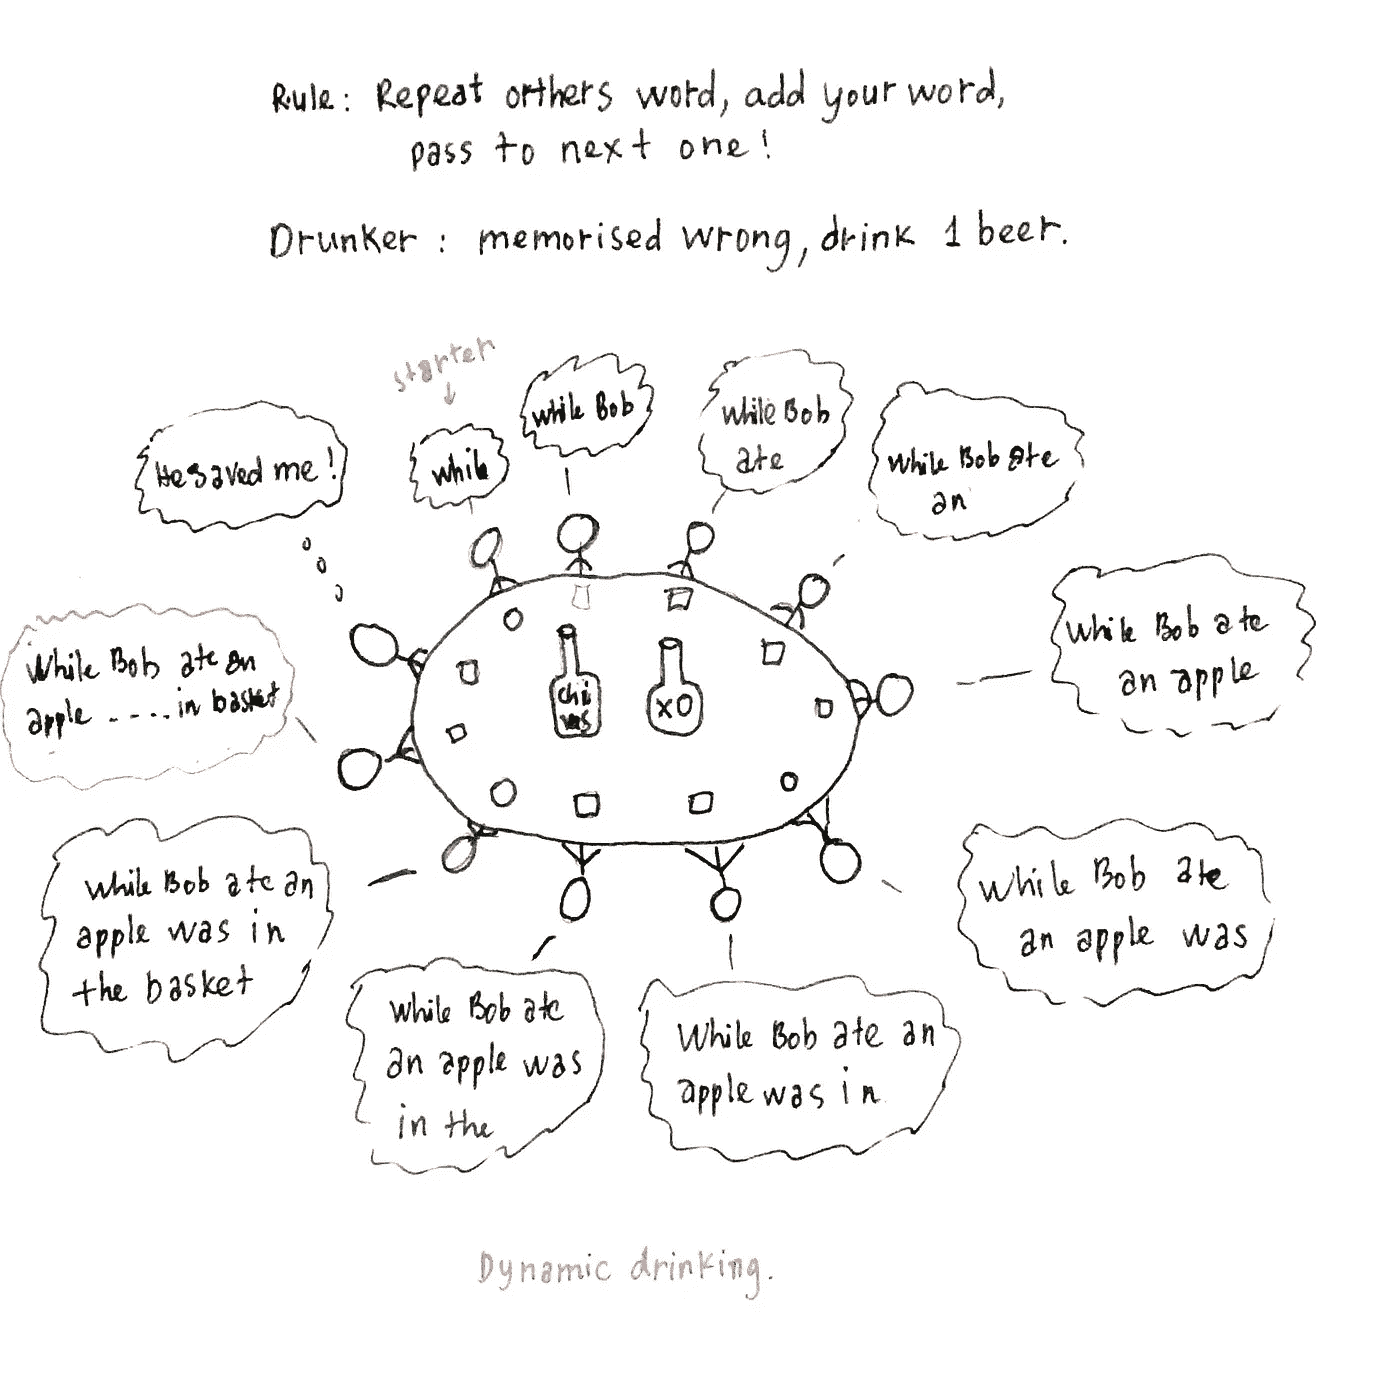 Rule: Repeat orthers word, add your word,
pass to next one!
Drunker: memorised wrong, drink 1 beer.
starter
while
while Bob
while Bob
ate
while Bob ate
an
while Bob ate
an apple
while Bob ate
an apple was
While Bob ate an
apple was in
while Bob ate
an apple was
in the
while Bob ate an
apple was in
the basket
While Bob ate an
apple ----.in basket
He saved me!
chi
vas
XO
Dynamic drinking.